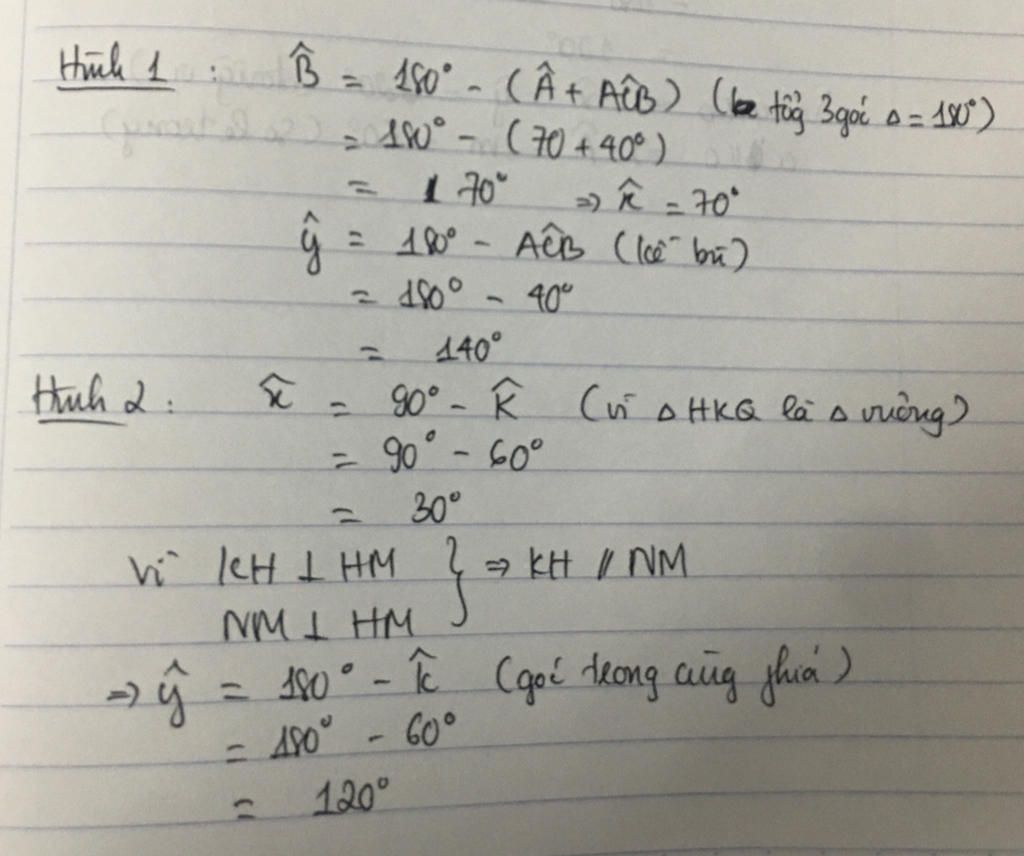 Hình 1 : B̂ = 180° - (Â + AĈB) (tổg 3 góc Δ = 180°)
= 180° - (70 + 40°)
= 70° ⇒ x̂ = 70°
ŷ = 180° - AĈB (kề bù)
= 180° - 40°
= 140°
Hình 2 : x̂ = 90° - K̂ (vì Δ HKQ là Δ vuông)
= 90° - 60°
= 30°
Vì KH ⊥ HM } ⇒ KH // NM
NM ⊥ HM
⇒ ŷ = 180° - K̂ (góc trong cùg phía)
= 180° - 60°
= 120°